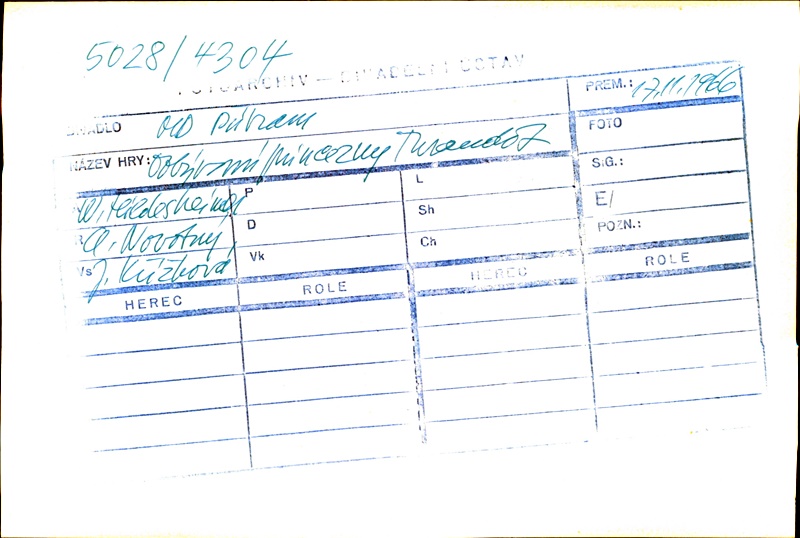 5028/4304
FOTOARCHIV — DIVADELNÍ ÚSTAV
DIVADLO OD Příbram PREM.: 17.11.1966
NÁZEV HRY: Dobývání princezny Turandot FOTO
W. Hildesheimer P L SIG.:
R A. Novotný D Sh E/
Vs J. Křížková Vk Ch POZN.:
HEREC ROLE HEREC ROLE